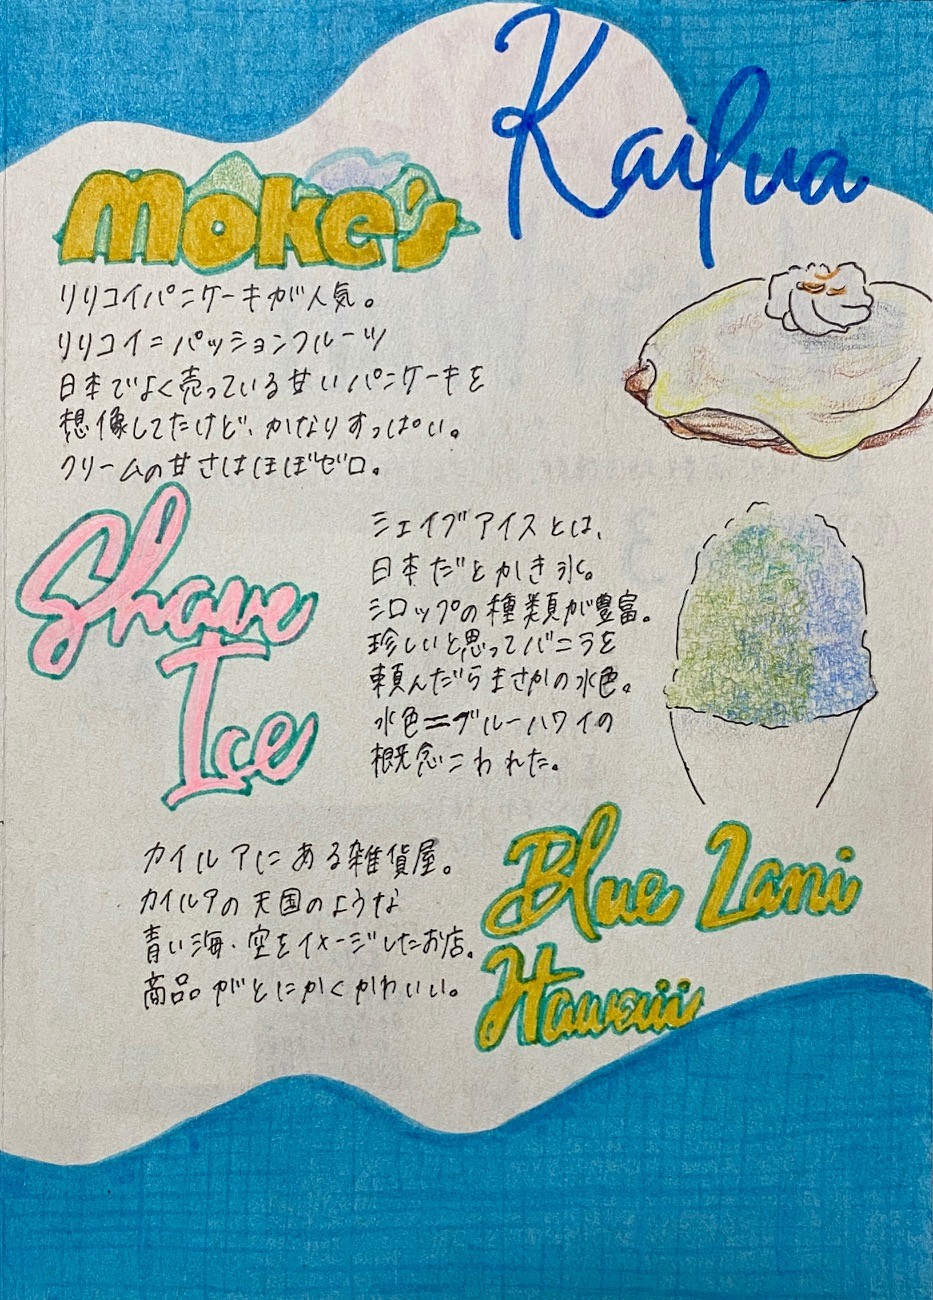 Kailua
Moke's
リリコイパンケーキが人気。
リリコイ=パッションフルーツ
日本でよく売っている甘いパンケーキを
想像してたけど、かなりすっぱい。
クリームの甘さはほぼゼロ。
Shave
Ice
シェイブアイスとは、
日本だとかき氷。
シロップの種類が豊富。
珍しいと思ってバニラを
頼んだらまさかの水色。
水色=ブルーハワイの
概念こわれた。
カイルアにある雑貨屋。
カイルアの天国のような
青い海・空をイメージしたお店。
商品がとにかくかわいい。
Blue Lani
Hawaii